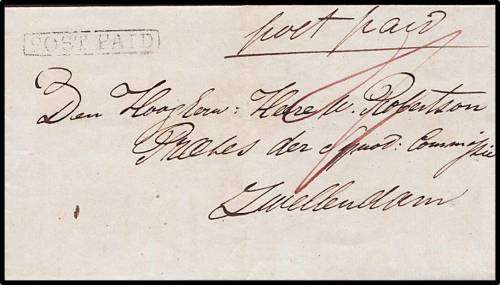 POST PAID
post paid
Den HoogEerw: Heere W. Robertson
Præses der Synod: Commissie
Zwellendam